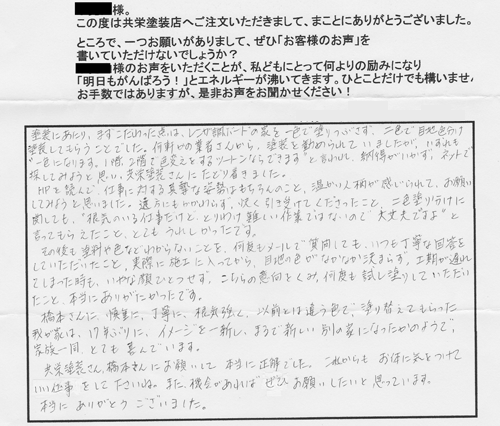 様。
この度は共栄塗装店へご注文いただきまして、まことにありがとうございました。
ところで、一つお願いがありまして、ぜひ「お客様のお声」を
書いていただけないでしょうか?
様のお声をいただくことが、私どもにとって何よりの励みになり
「明日もがんばろう!」とエネルギーが沸いてきます。ひとことだけでも構いません
お手数ではありますが、是非お声をお聞かせください!
塗装にあたり、まずこだわった点は、レンガ調ボードの家を一色で塗りつぶさず、二色で目地色分け
塗装してもらうことでした。何軒かの業者さんから、塗装を勧められていましたが、いずれも
"一色になります。1階2階で色変えをするツートンならできます"と言われ、納得がいかず、ネットで
探してみようと思い、共栄塗装さんにたどり着きました。
HPを読んで、仕事に対する真摯な姿勢はもちろんのこと、温かい人柄が感じられて、お願い
してみようと思いました。遠方にもかかわらず、快く引き受けてくださったこと、二色塗り分けに
関しても、"根気のいる仕事だけど、とりわけ難しい作業ではないので大丈夫ですよ"と
言ってもらえたこと、とてもうれしかったです。
その後も塗料や色などわからないことを、何度もメールで質問しても、いつも丁寧な回答を
していただいたこと、実際に施工に入ってから、目地の色がなかなか決まらず、工期が遅れ
てしまった時も、いやな顔ひとつせず、こちらの意向をくみ、何度も試し塗りしていただい
たこと、本当にありがたかったです。
橋本さんに、慎重に、丁寧に、根気強く、以前とは違う色で、塗り替えてもらった
我が家は、17年ぶりに、イメージを一新し、まるで新しい別の家になったかのようで、
家族一同、とても喜んでいます。
共栄塗装さん、橋本さんにお願いして、本当に正解でした。これからもお体に気をつけて
いい仕事をして下さいね。また、機会があればぜひお願いしたいと思っています。
本当にありがとうございました。